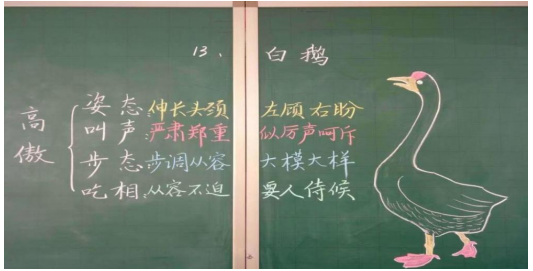 13、白鹅
高傲
姿态:伸长头颈 左顾右盼
叫声:严肃郑重 似厉声呵斥
步态:步调从容 大模大样
吃相:从容不迫 要人侍候